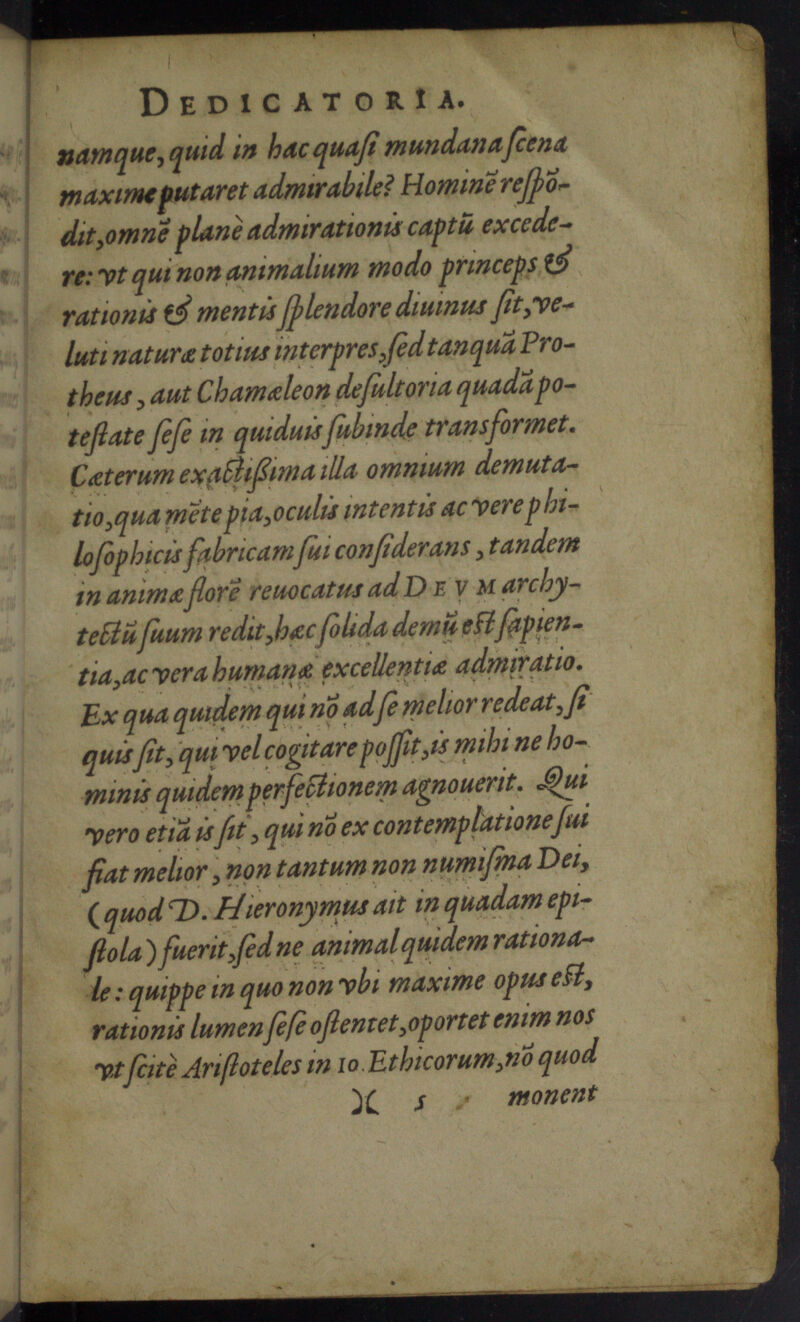 DEDICATORIA.
namque, quid in hac quaſi mundana ſcena
maxime putaret admirabile? Hominẽ reſpõ-
dit, omnẽ planè admirationis captũ excede-
re: vt qui non animalium modo princeps &
rationis & mentis ſplendore diuinus ſit, ve-
luti naturæ totius interpres, ſed tanquã Pro-
theus, aut Chamæleon deſultoria quadã po-
teſtate ſeſe in quiduis ſubinde transformet.
Cæterum exactiſsima illa omnium demuta-
tio, qua mẽte pia, oculis intentis ac vere phi-
loſophicis fabricam ſui conſiderans, tandem
in animæ florẽ reuocatus ad DEVM archy-
tectũ ſuum redit, hæc ſolida demũ eſt ſapien-
tia, ac vera humanæ excellentiæ admiratio.
Ex qua quidem qui nõ ad ſe melior redeat, ſi
quis ſit, qui vel cogitare poſſit, is mihi ne ho-
minis quidem perfectionem agnouerit. Qui
vero etiã is ſit, qui nõ ex contemplatione ſui
fiat melior, non tantum non numiſma Dei,
(quod D. Hieronymus ait in quadam epi-
ſtola) fuerit, ſed ne animal quidem rationa-
le: quippe in quo non vbi maxime opus eſt,
rationis lumen ſeſe oſtentet, oportet enim nos
vt ſcitè Ariſtoteles in 10. Ethicorum, nõ quod
)( 5 monent